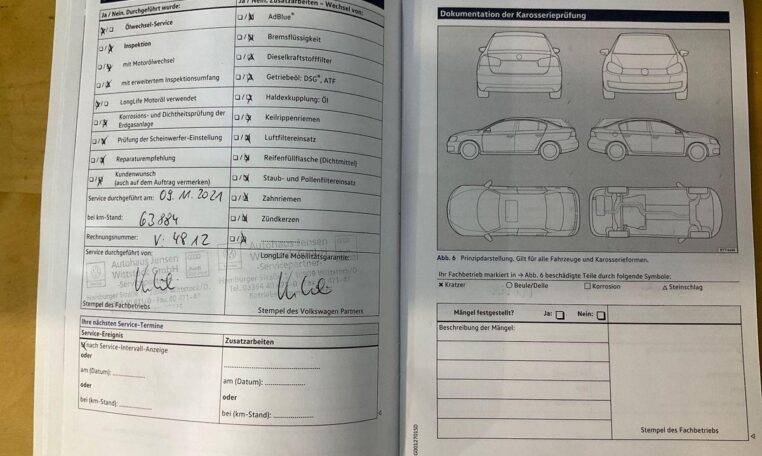 Ja / Nein. Durchgeführt wurde:
Ölwechsel-Service
Inspektion
mit Motorölwechsel
mit erweitertem Inspektionsumfang
LongLife Motoröl verwendet
Korrosions- und Dichtheitsprüfung der
Erdgasanlage
Prüfung der Scheinwerfer-Einstellung
Reparaturempfehlung
Kundenwunsch
(auch auf dem Auftrag vermerken)
Service durchgeführt am: 09.11.2021
bei km-Stand: 63884
Rechnungsnummer: V: 4812
Service durchgeführt von:
Autohaus Jensen
Wittstock GmbH
Stempel des Fachbetriebs
Ja / Nein. Zusatzarbeiten – Wechsel von:
AdBlue®
Bremsflüssigkeit
Dieselkraftstofffilter
Getriebeöl: DSG®, ATF
Haldexkupplung: Öl
Keilrippenriemen
Luftfiltereinsatz
Reifenfüllflasche (Dichtmittel)
Staub- und Pollenfiltereinsatz
Zahnriemen
Zündkerzen
LongLife Mobilitätsgarantie:
-Servicepartner-
Stempel des Volkswagen Partners
Ihre nächsten Service-Termine
Service-Ereignis
nach Service-Intervall-Anzeige
oder
am (Datum):
oder
bei (km-Stand):
Zusatzarbeiten
am (Datum):
oder
bei (km-Stand):
Dokumentation der Karosserieprüfung
Abb. 6 Prinzipdarstellung. Gilt für alle Fahrzeuge und Karosserieformen.
Ihr Fachbetrieb markiert in → Abb. 6 beschädigte Teile durch folgende Symbole:
× Kratzer ○ Beule/Delle □ Korrosion △ Steinschlag
Mängel festgestellt? Ja: □ Nein: □
Beschreibung der Mängel:
Stempel des Fachbetriebs